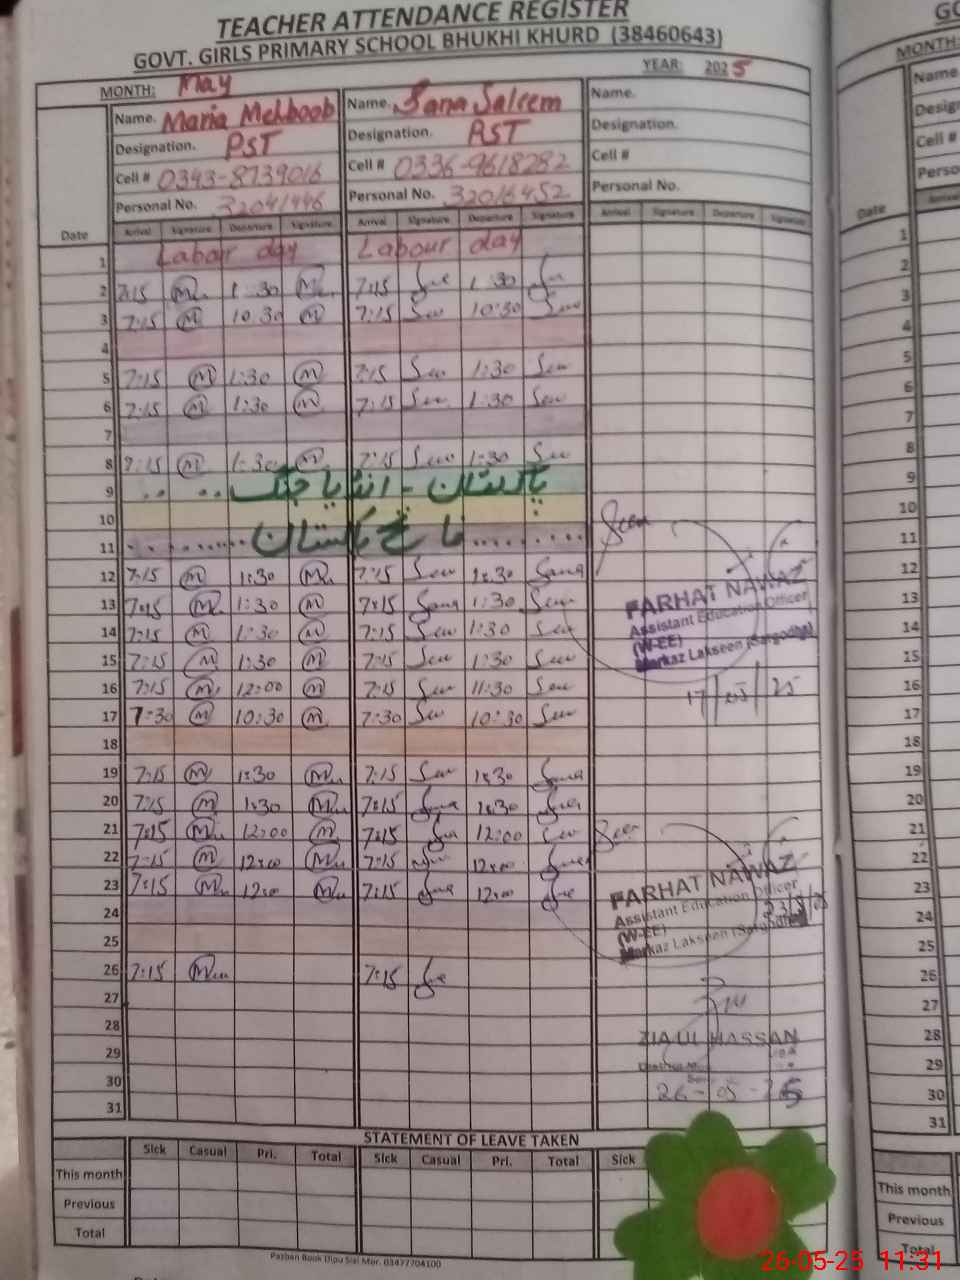 TEACHER ATTENDANCE REGISTER
GOVT. GIRLS PRIMARY SCHOOL BHUKHI KHURD (38460643)
MONTH: May YEAR: 2025
Name. Maria Mehboob Name. Sana Saleem Name.
Designation. PST Designation. PST Designation.
Cell # 0343-8739016 Cell # 0336-9618282 Cell #
Personal No. 32041446 Personal No. 32016452 Personal No.
Date Arrival Signature Departure Signature Arrival Signature Departure Signature Arrival Signature Departure Signature
1 Labour day Labour day
2 7:15 1:30 7:15 1:30
3 7:15 10:30 7:15 10:30
4
5 7:15 1:30 7:15 1:30
6 7:15 1:30 7:15 1:30
7
8 7:15 1:30 7:15 1:30
9 پاکستان - انڈیا جنگ
10
11 فاتح پاکستان
12 7:15 1:30 7:15 1:30 Sana
13 7:15 1:30 7:15 Sana 1:30
14 7:15 1:30 7:15 1:30
15 7:15 1:30 7:15 1:30
16 7:15 12:00 7:15 11:30
17 7:30 10:30 7:30 10:30
18
19 7:15 1:30 7:15 1:30
20 7:15 1:30 7:15 1:30
21 7:15 12:00 7:15 12:00
22 7:15 12:00 7:15 12:00
23 7:15 12:00 7:15 12:00
24
25
26 7:15 7:15
27
28
29
30
31
Seen
FARHAT NAWAZ
Assistant Education Officer
(W-EE)
Markaz Lakseen (Sargodha)
17/05/25
Seen
FARHAT NAWAZ
Assistant Education Officer
(W-EE)
Markaz Lakseen (Sargodha)
ZIA UL HASSAN
26-05-25
STATEMENT OF LEAVE TAKEN
Sick Casual Pri. Total Sick Casual Pri. Total Sick
This month
Previous
Total
Pazban Book Dipu Sial Mor. 03477704100
MONTH:
Name
Cell #
Date
1
2
3
4
5
6
7
8
9
10
11
12
13
14
15
16
17
18
19
20
21
22
23
24
25
26
27
28
29
30
31
This month
Previous
Total
26-05-25 11:31